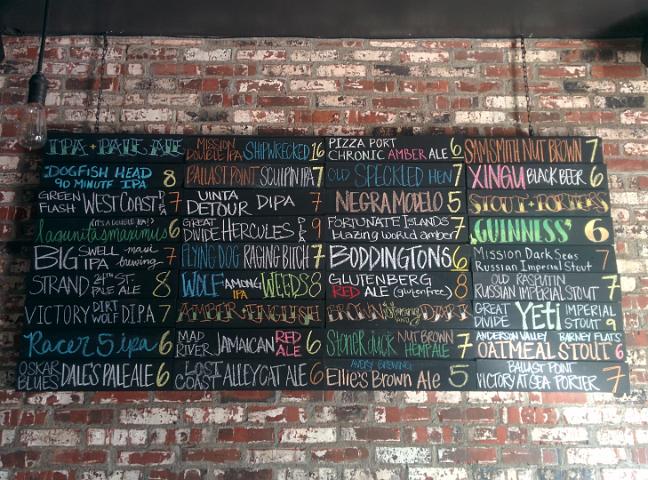 IPA + PALE ALE
DOGFISH HEAD 8
90 MINUTE IPA
GREEN FLASH WEST COAST IPA 7
lagunitas maximus 6
BIG SWELL IPA - maui brewing 7
STRAND 24TH ST PALE ALE 8
VICTORY DIRT WOLF DIPA 7
Racer 5 ipa 6
OSKAR BLUES DALE'S PALE ALE 6
MISSION DOUBLE IPA SHIPWRECKED 16
BALLAST POINT SCULPIN IPA 7
UINTA DETOUR DIPA 7
GREAT DIVIDE HERCULES DIPA 9
FLYING DOG RAGING BITCH 7
WOLF AMONG WEEDS IPA 8
MAD RIVER JAMAICAN RED ALE 6
LOST COAST ALLEYCAT ALE 6
PIZZA PORT
CHRONIC AMBER ALE 6
OLD SPECKLED HEN 7
NEGRA MODELO 5
FORTUNATE ISLANDS
blazing world amber 7
BODDINGTONS 6
GLUTENBERG
RED ALE (gluten free) 8
BROWN DARK
Stoner duck NUT BROWN HEMP ALE 7
AVERY BREWING
Ellie's Brown Ale 5
SAM SMITH NUT BROWN 7
XINGU BLACK BEER 6
STOUT + PORTERS
GUINNESS' 6
Mission Dark Seas
Russian Imperial Stout 7
OLD RASPUTIN
RUSSIAN IMPERIAL STOUT 7
GREAT DIVIDE YETI IMPERIAL STOUT 9
ANDERSON VALLEY BARNEY FLATS
OATMEAL STOUT 6
BALLAST POINT
VICTORY AT SEA PORTER 7